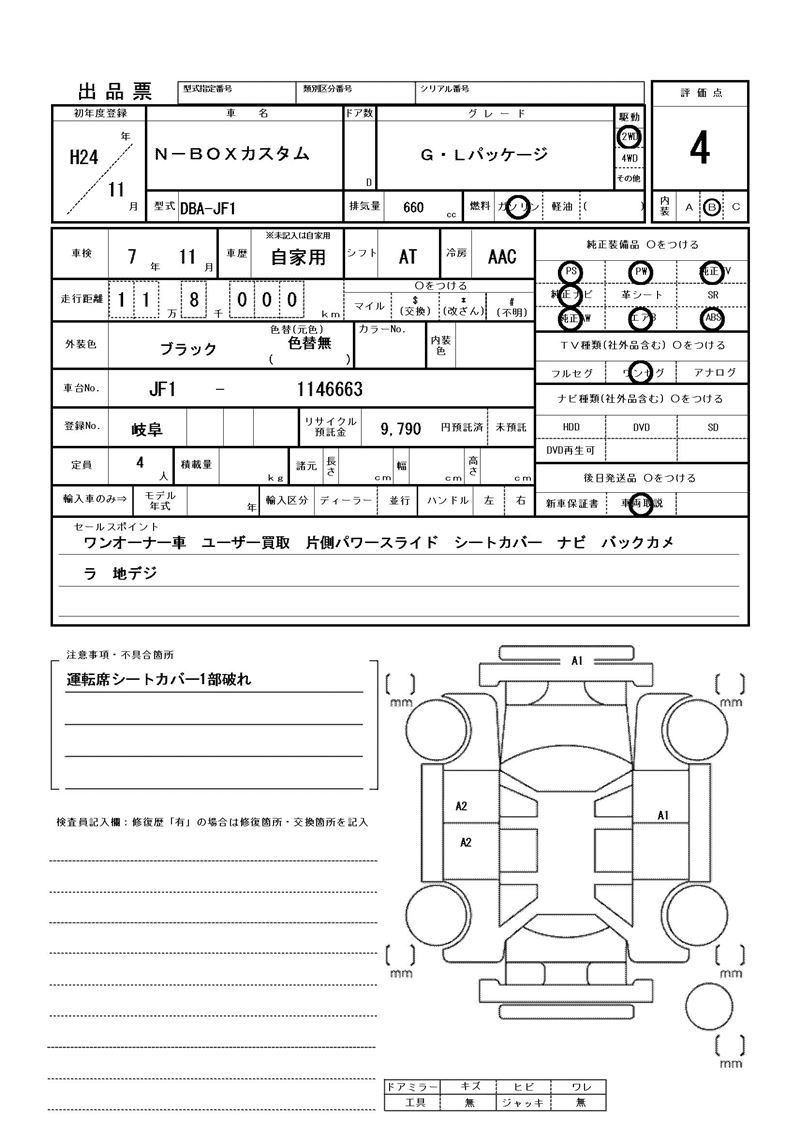 出品票 型式指定番号 類別区分番号 シリアル番号
評価点
4
初年度登録 車名 ドア数 グレード 駆動
H24 年 11 月
N-BOXカスタム D G・Lパッケージ
2WD
4WD
その他
型式 DBA-JF1 排気量 660 cc 燃料 ガソリン 軽油 ( )
内装 A B C
車検 7 年 11 月 車歴 ※未記入は自家用 自家用 シフト AT 冷房 AAC
純正装備品 〇をつける
PS PW 純正TV
純正ナビ 革シート SR
純正AW エアB ABS
走行距離 11 万 8 千 000 km
〇をつける
マイル $(交換) *(改ざん) #(不明)
外装色 ブラック 色替(元色) 色替無 ( ) カラーNo. 内装色
TV種類(社外品含む) 〇をつける
フルセグ ワンセグ アナログ
車台No. JF1 - 1146663
ナビ種類(社外品含む) 〇をつける
HDD DVD SD
DVD再生可
登録No. 岐阜 リサイクル預託金 9,790 円預託済 未預託
定員 4 人 積載量 kg 諸元 長さ cm 幅 cm 高さ cm
後日発送品 〇をつける
新車保証書 車両取説
輸入車のみ⇒ モデル年式 年 輸入区分 ディーラー 並行 ハンドル 左 右
セールスポイント
ワンオーナー車 ユーザー買取 片側パワースライド シートカバー ナビ バックカメ
ラ 地デジ
注意事項・不具合箇所
運転席シートカバー1部破れ
検査員記入欄:修復歴「有」の場合は修復箇所・交換箇所を記入
A1
[ ] mm [ ] mm
A2 A1
A2
[ ] mm [ ] mm
[ ] mm
ドアミラー キズ ヒビ ワレ
工具 無 ジャッキ 無